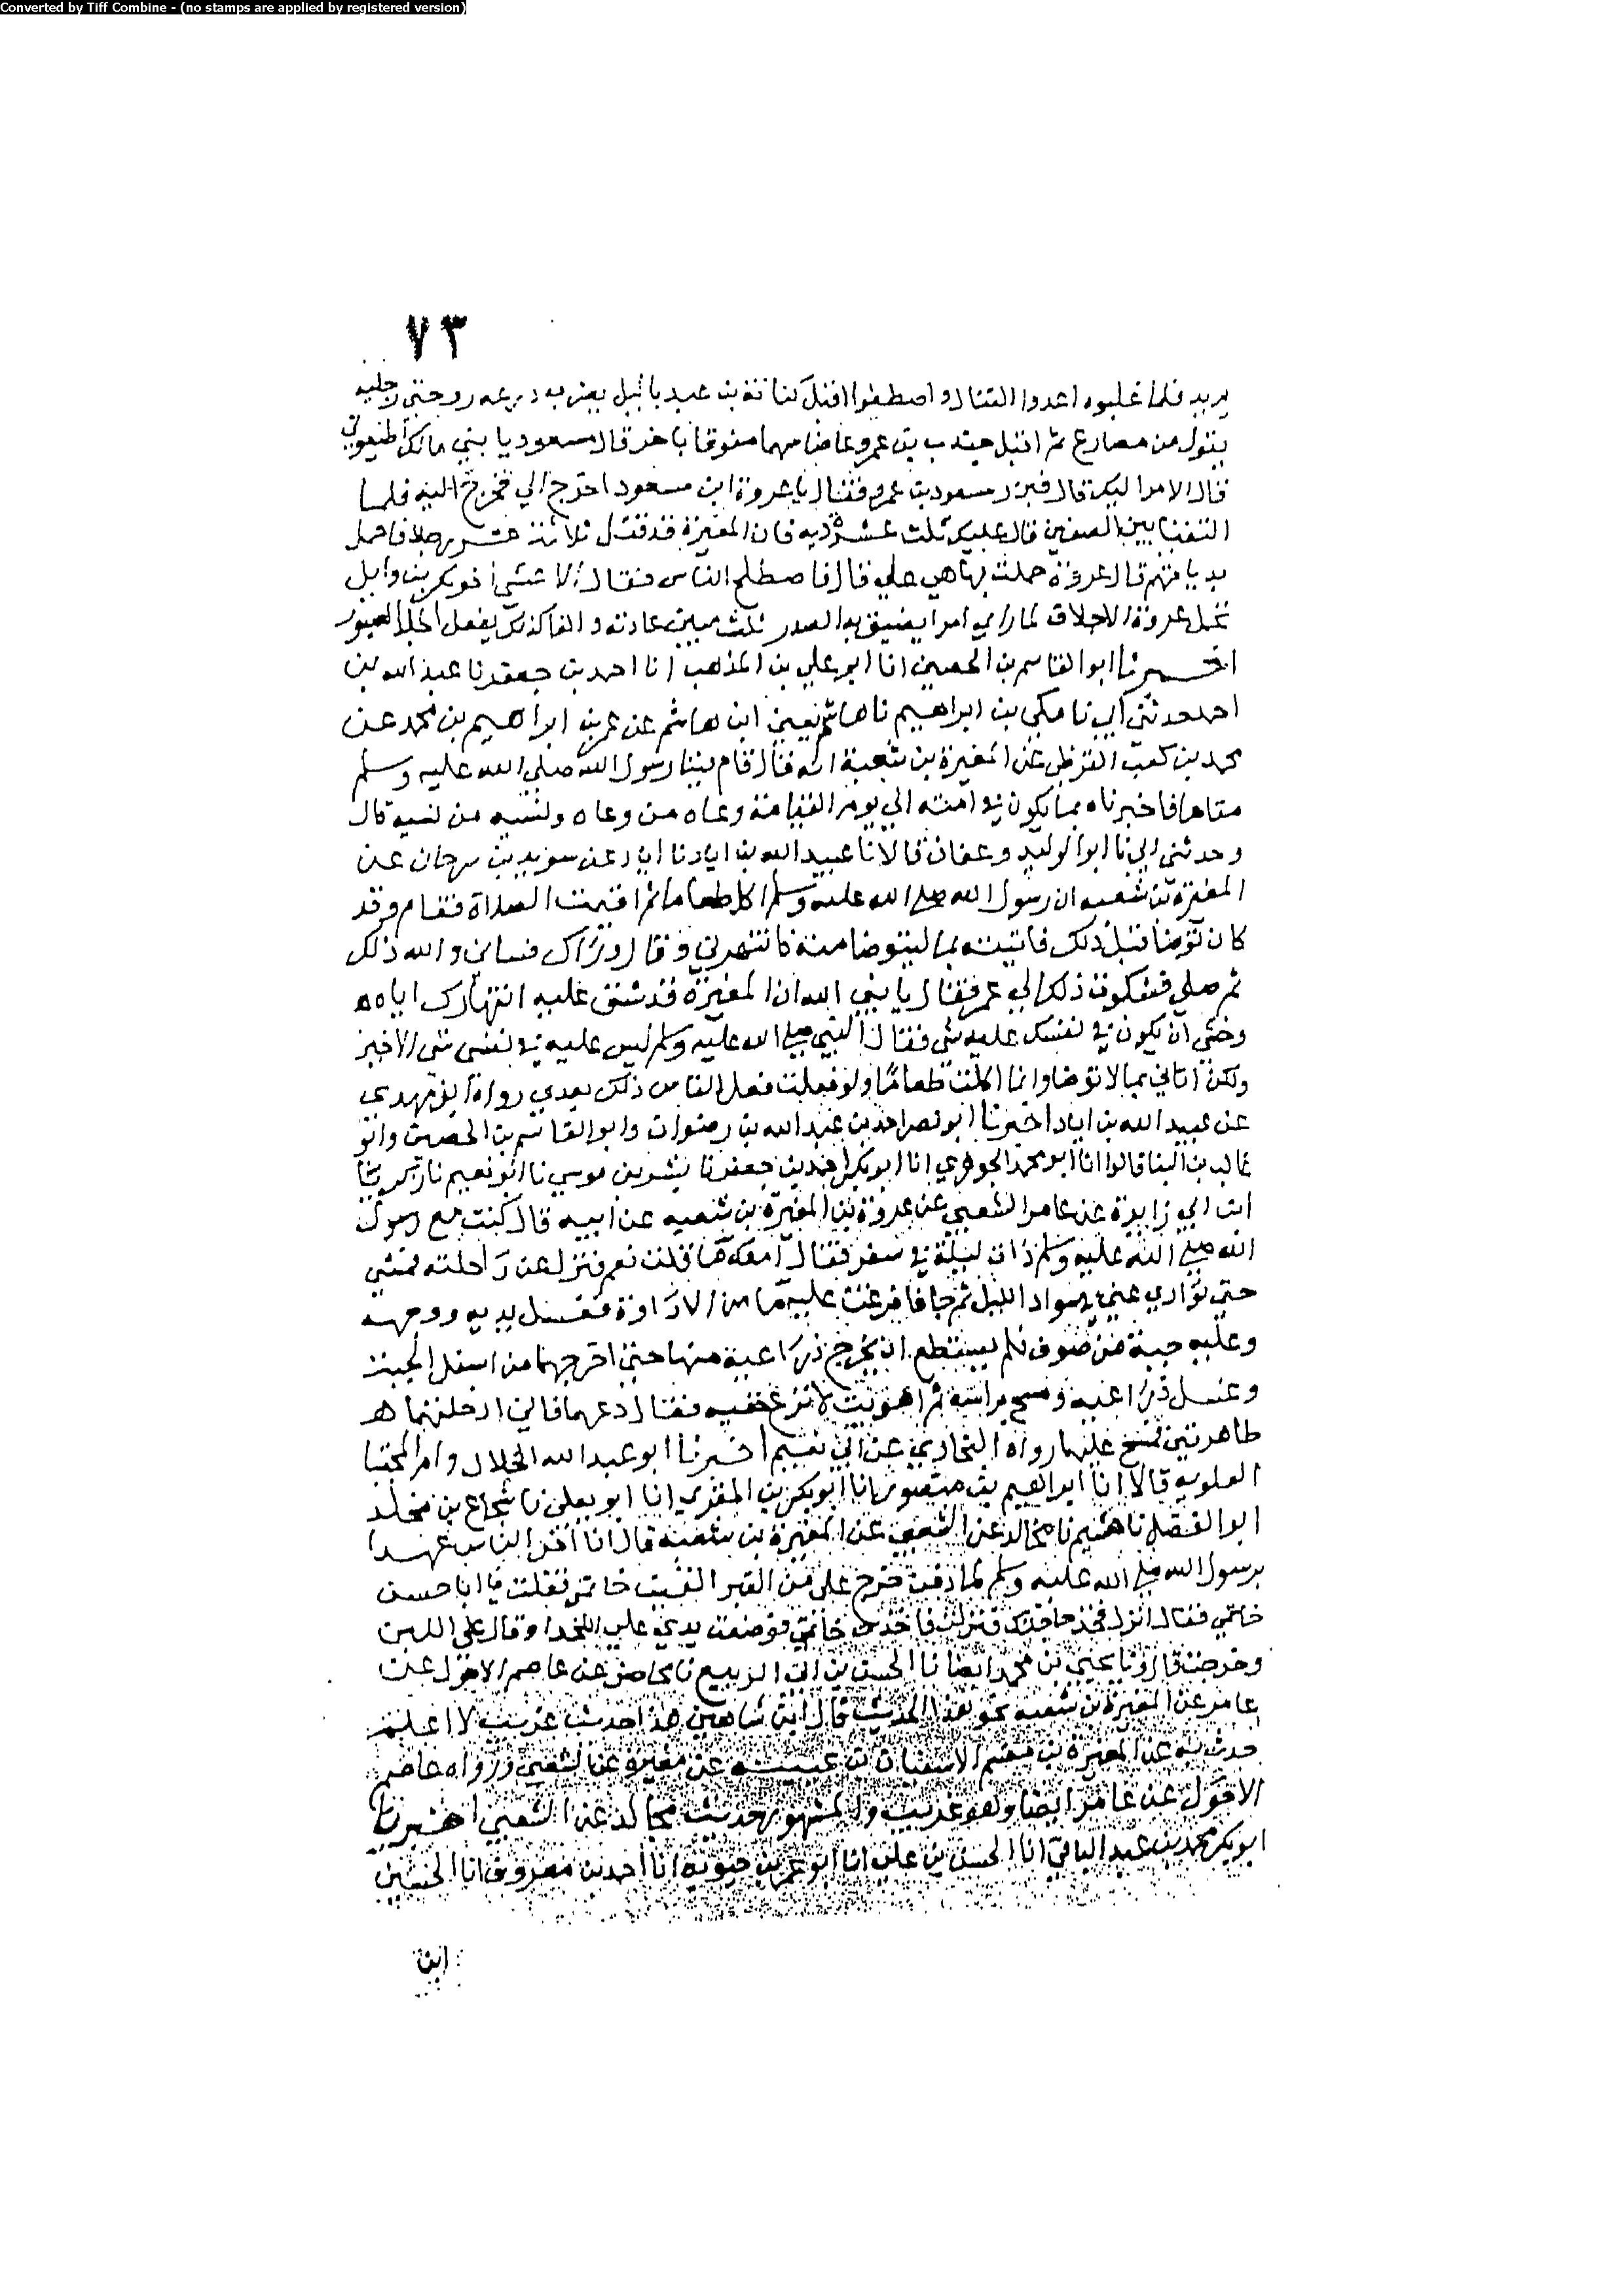 Converted by Tiff Combine - (no stamps are applied by registered version)
٧٣
يريد فلما غلبوه اعدوا القتال واصطفوا اقبل كنانة بن عبد ياليل يضرب درعه روحتي رجليه
يقول من مصارع ثم اقبل جندب بن عمرو عاضا سهما مفوقا باخر قال مسعود يا بني مالك اطيعوني
قال الامر اليك قال فبرز مسعود بن عمرو فقال يا عروة ابن مسعود اخرج الي فخرج اليه فلما
التقيا بين الصفين قال عليك ثلث عشرة دية فان المغيرة قد قتل ثلاثة عشر رجلا فاحمل
بدياتهم قال عروة حملت بها هي علي قال فاصطلح الناس فقال الاعشى اخو بكر بن وايل
تحمل عروة الاحلاف لما راى امرا يضيق به الصدر ثلث مبين عادته والفا كذلك يفعل الجلد الصبور
اخبرنا ابو القاسم بن الحصين انا ابو علي بن المذهب انا احمد بن جعفر نا عبد الله بن
احمد حدثني ابي نا مكي بن ابراهيم نا هاشم يعني ابن هاشم عن عمر بن ابراهيم بن محمد عن
محمد بن كعب القرظي عن المغيرة بن شعبة انه قال قام بيننا رسول الله صلي الله عليه وسلم
مقاما فاخبرناه بما يكون في امته الي يوم القيامة وعاه من وعاه ونسيه من نسيه قال
وحدثني ابي نا ابو الوليد وعفان قالا نا عبيد الله بن اياد نا اياد عن سويد بن سرحان عن
المغيرة بن شعبه ان رسول الله صلي الله عليه وسلم اكل طعاما ثم اقيمت الصلاة فقام وقد
كان توضا قبل ذلك فاتيته بما ليتوضا منه فانتهرني وقال وراك فسانى والله ذلك
ثم صلى فشكوت ذلك الي عمر فقال يا نبي الله ان المغيرة قد شق عليه انتهارك اياه
وخشى ان يكون في نفسك عليه شى فقال النبي صلي الله عليه وسلم ليس عليه في نفسى شى الا خير
ولكن اتاني بما لاتوضا وانما اكلت طعاما ولو فعلت فعل الناس ذلك بعدي رواه ابن مهدي
عن عبيد الله بن اياد اخبرنا ابو نصر احمد بن عبد الله بن رضوان وابو القاسم بن الحصين وابو
غالب بن البنا قالوا انا ابو محمد الجوهري انا ابو بكر احمد بن جعفر نا بشر بن موسي نا ابو نعيم نا زكريا
ابن ابي زايدة عن عامر الشعبي عن عروة بن المغيرة بن شعبه عن ابيه قال كنت مع رسول
الله صلي الله عليه وسلم ذات ليلة في سفر فقال امعك ما قلت نعم فنزل عن راحلته فمشي
حتي توارى عني في سواد الليل ثم جا فافرغت عليه ما من الاداوة فغسل يديه ووجهه
وعليه جبة من صوف فلم يستطع ان يخرج ذراعيه منها حتي اخرجهما من اسفل الجبة
وغسل ذراعيه ومسح براسه ثم اهويت لانزع خفيه فقال دعهما فاني ادخلتهما
طاهرتين فمسح عليهما رواه البخاري عن ابي نعيم اخبرنا ابو عبد الله الخلال وام المجتبا
العلويه قالا انا ابراهيم بن منصور انا ابو بكر بن المقري انا ابو يعلى نا شجاع بن مخلد
ابو الفضل نا هشيم نا مجالد عن الشعبي عن المغيرة بن شعبه قال انا اخر الناس عهدا
برسول الله صلي الله عليه وسلم لما دفن خرج على من القبر القيت خاتمي فقلت يا ابا حسن
خاتمي فقال انزل فخذ خاتمك فنزلت فاخذت خاتمي فوضعت يدي على اللحد وقال على اللبن
وخرجت قال ونا يحيي بن محمد ايضا نا الحسن بن ابي الربيع نا محاضر عن عاصم الاحول عن
عامر عن المغيرة بن شعبه نحو هذا الحديث قال ابن شاهين هذا حديث غريب لا اعلم
حدث به عن المغيرة بن مقسم الا سفيان بن عيينه عن مغيرة عن الشعبي ورواه عاصم
الاحول عن عامر ايضا وهو غريب والمشهور حديث مجالد عن الشعبي اخبرنا
ابو بكر محمد بن عبد الباقي انا الحسن بن علي انا ابو عمر بن حيويه انا احمد بن معروف انا الحسين
ابن